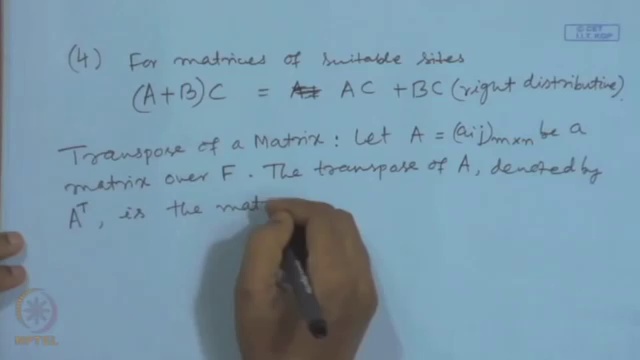 © CET
I.I.T. KGP
(4) For matrices of suitable sites
(A+B)C = AC + BC (right distributive).
Transpose of a Matrix : Let A = (aij)m×n be a
matrix over F. The transpose of A, denoted by
A^T, is the mat
NPTEL